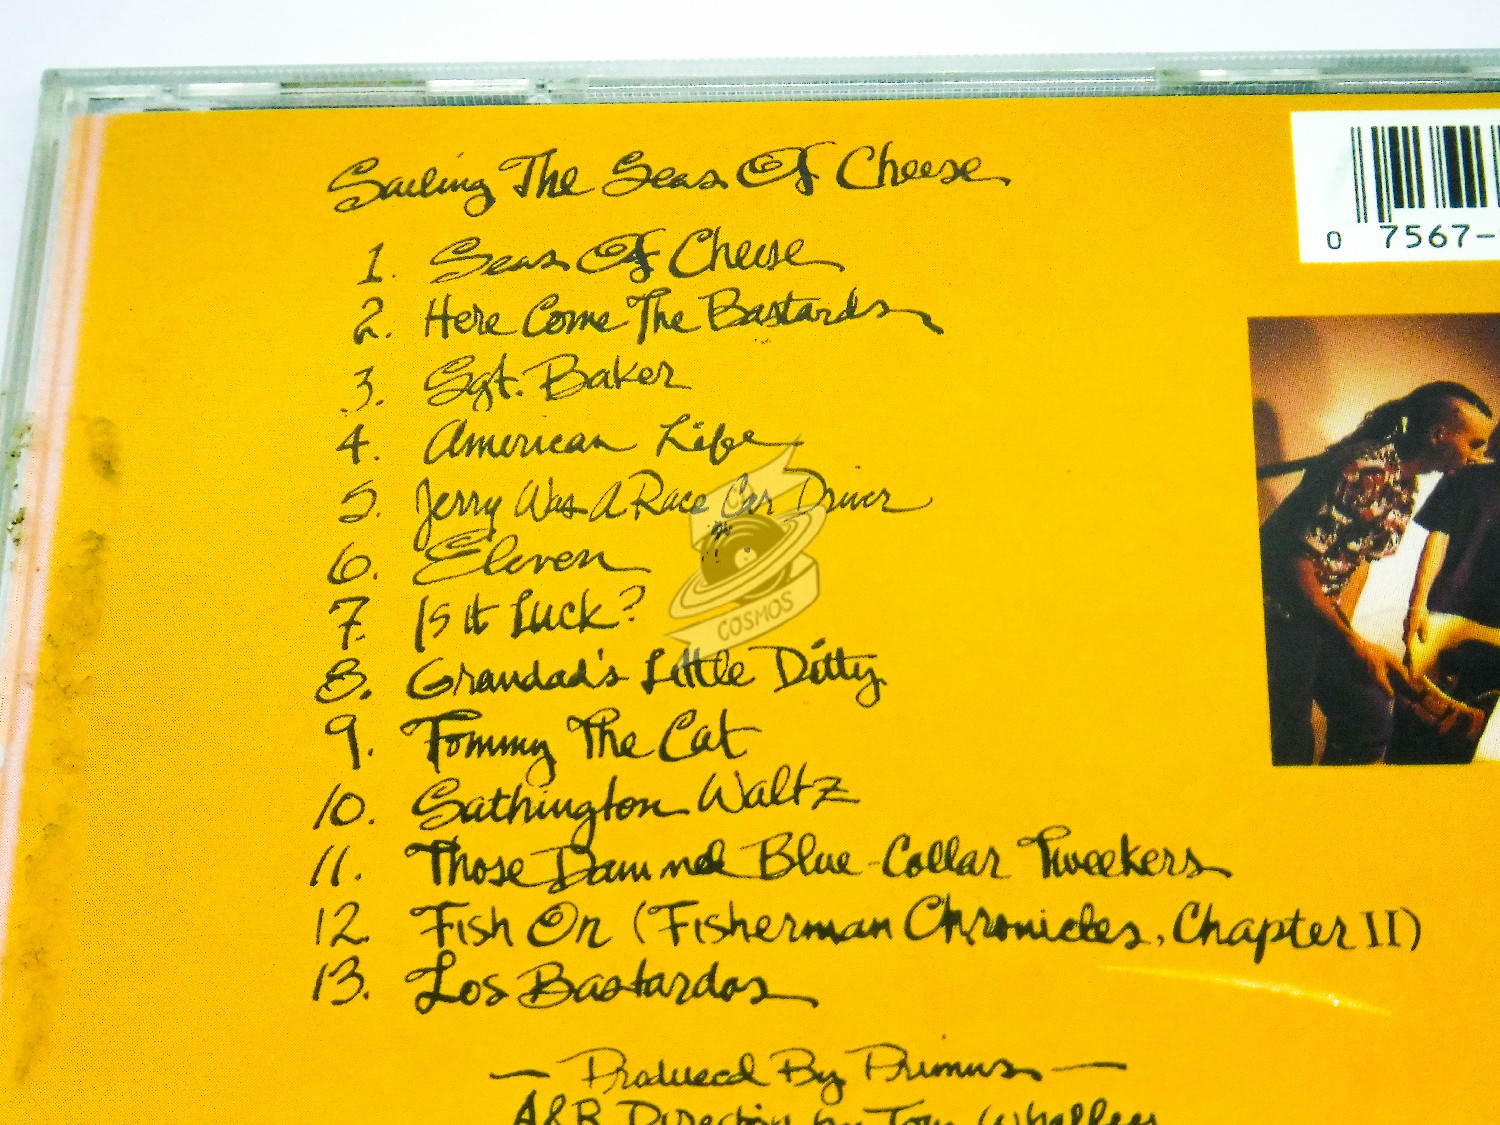 Sailing The Seas Of Cheese
0 7567-
1. Seas Of Cheese
2. Here Come The Bastards
3. Sgt. Baker
4. American Life
5. Jerry Was A Race Car Driver
6. Eleven
7. Is it Luck?
COSMOS
8. Grandad's Little Ditty
9. Tommy The Cat
10. Sathington Waltz
11. Those Damned Blue-Collar Tweekers
12. Fish On (Fisherman Chronicles, Chapter II)
13. Los Bastardos
— Produced By Primus —
A&R Direction by Tom Whalley